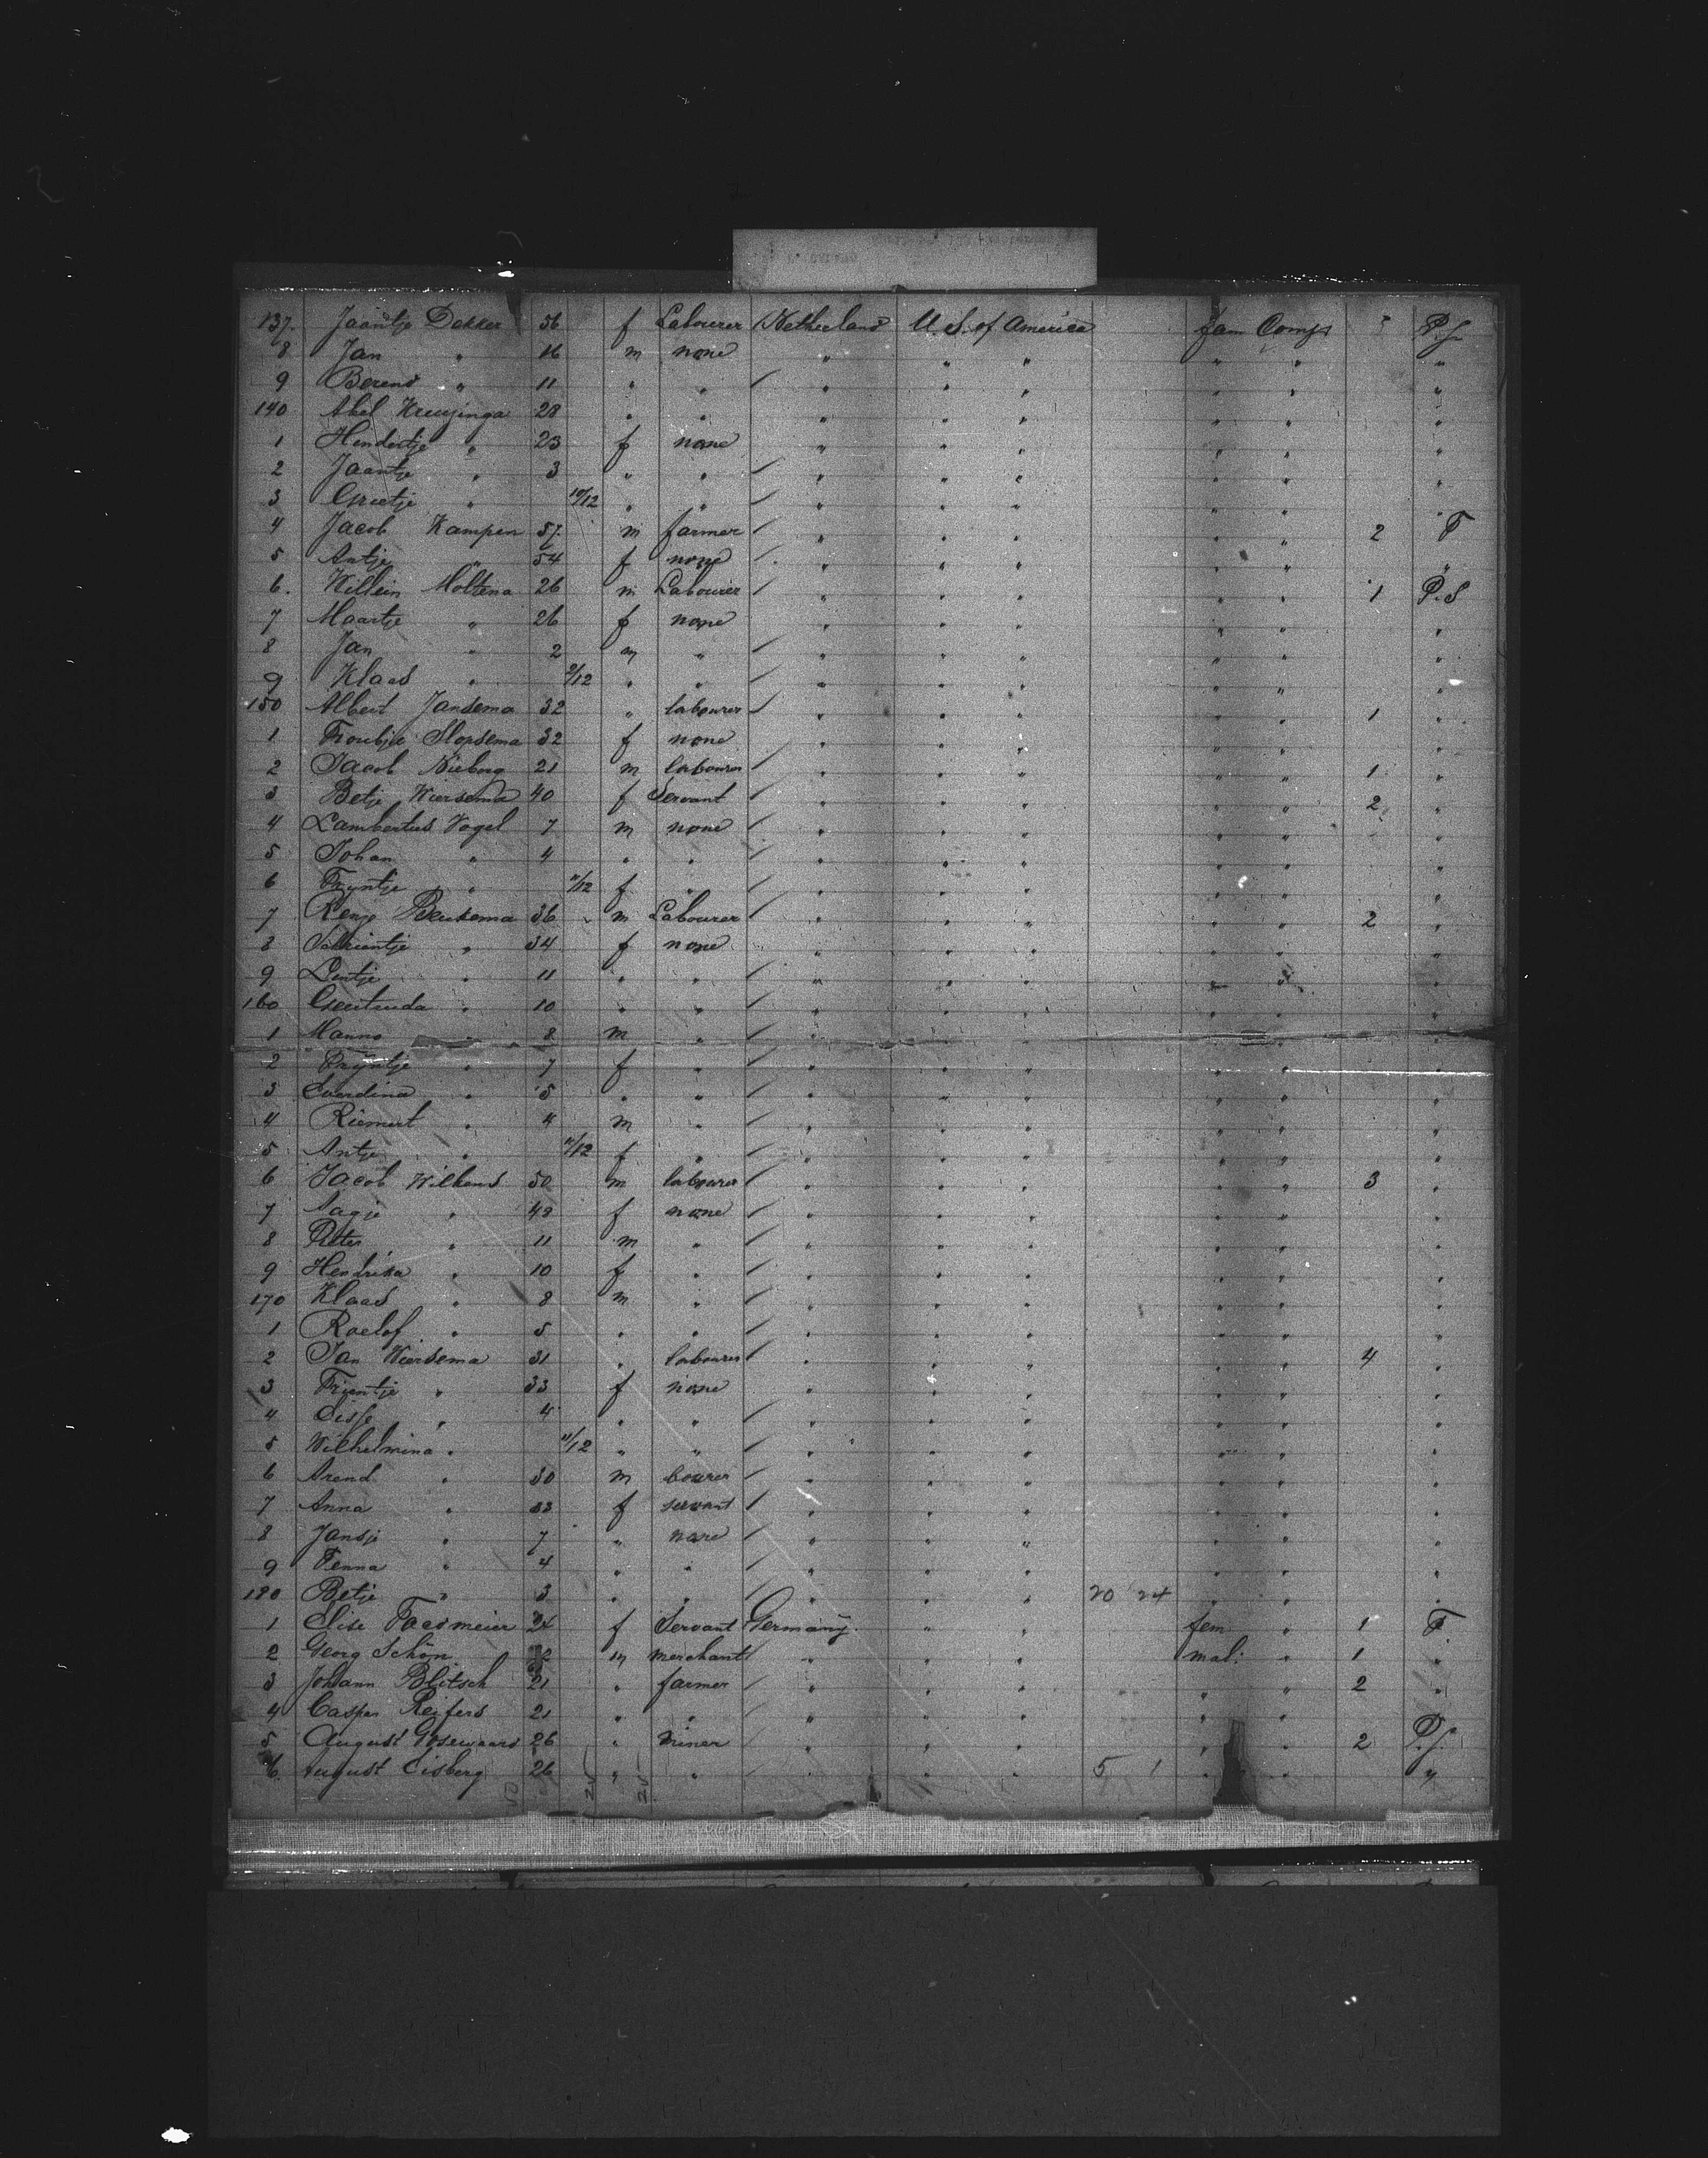 137. Jaantje Dekker 56 f Labourer Netherland U. S. of America fam Comps P.S.
8 Jan " 16 m none " " " " " "
9 Berend " 11 " " " " " " " "
140 Abel Kreuzinga 28 " " " " " " " "
1 Hendertje " 23 f none " " " " " "
2 Jaantje " 3 " " " " " " " "
3 Grietje " 10/12 " " " " " " " "
4 Jacob Kampen 57. m farmer " " " " " 2 F
5 Antje " 54 f none " " " " " "
6. Willem Moltena 26 m Labourer " " " " " 1 P.S
7 Maartje " 26 f none " " " " " "
8 Jan " 2 m " " " " " " "
9 Klaas " 9/12 " " " " " " " "
150 Albert Jansema 32 " labourer " " " " " 1 "
1 Froukje Slopsema 32 f none " " " " " "
2 Jacob Nieborg 21 m labourer " " " " " 1 "
3 Betje Wiersema 40 f Servant " " " " " 2 "
4 Lambertus Vogel 7 m none " " " " " "
5 Johan " 4 " " " " " " " "
6 Tryntje " 11/12 f " " " " " " "
7 Beukema 36 m Labourer " " " " " 2 "
8 " 34 f none " " " " " "
9 " 11 " " " " " " " "
160 Geertruida " 10 " " " " " " " "
1 Manno " 8 m " " " " " " "
2 Tryntje " 7 f " " " " " " "
3 Everdina " 5 " " " " " " " "
4 Riemert " 4 m " " " " " " "
5 Antje " 11/12 f " " " " " " "
6 Jacob Wilkens 50 m labourer " " " " " 3 "
7 Aagje " 48 f none " " " " " "
8 Pieter " 11 m " " " " " " "
9 Hendrika " 10 f " " " " " " "
170 Klaas " 8 m " " " " " " "
1 Roelof " 5 " " " " " " " "
2 Jan Wiersema 31 " labourer " " " " " 4 "
3 Tryntje " 33 f none " " " " " "
4 " 4 " " " " " " " "
5 Wilhelmina " 11/12 " " " " " " " "
6 Arend " 30 m bourer " " " " " "
7 Anna " 33 f servant " " " " " "
8 Jansje " 7 " none " " " " " "
9 Fenna " 4 " " " " " " " "
180 Betje " 3 " " " " " 20 24 " " "
1 Elise 24 f Servant Germany. " " fem " 1 F
2 Georg Schön m merchant " " " mal: " 1 "
3 Johann Blitsch 21 " farmer " " " " " 2 "
4 Caspar Reifers 21 " " " " " " " "
5 August 26 " miner " " " " " 2 P.S.
6. August Eisberg 26 " " " " " 5 1 " " "